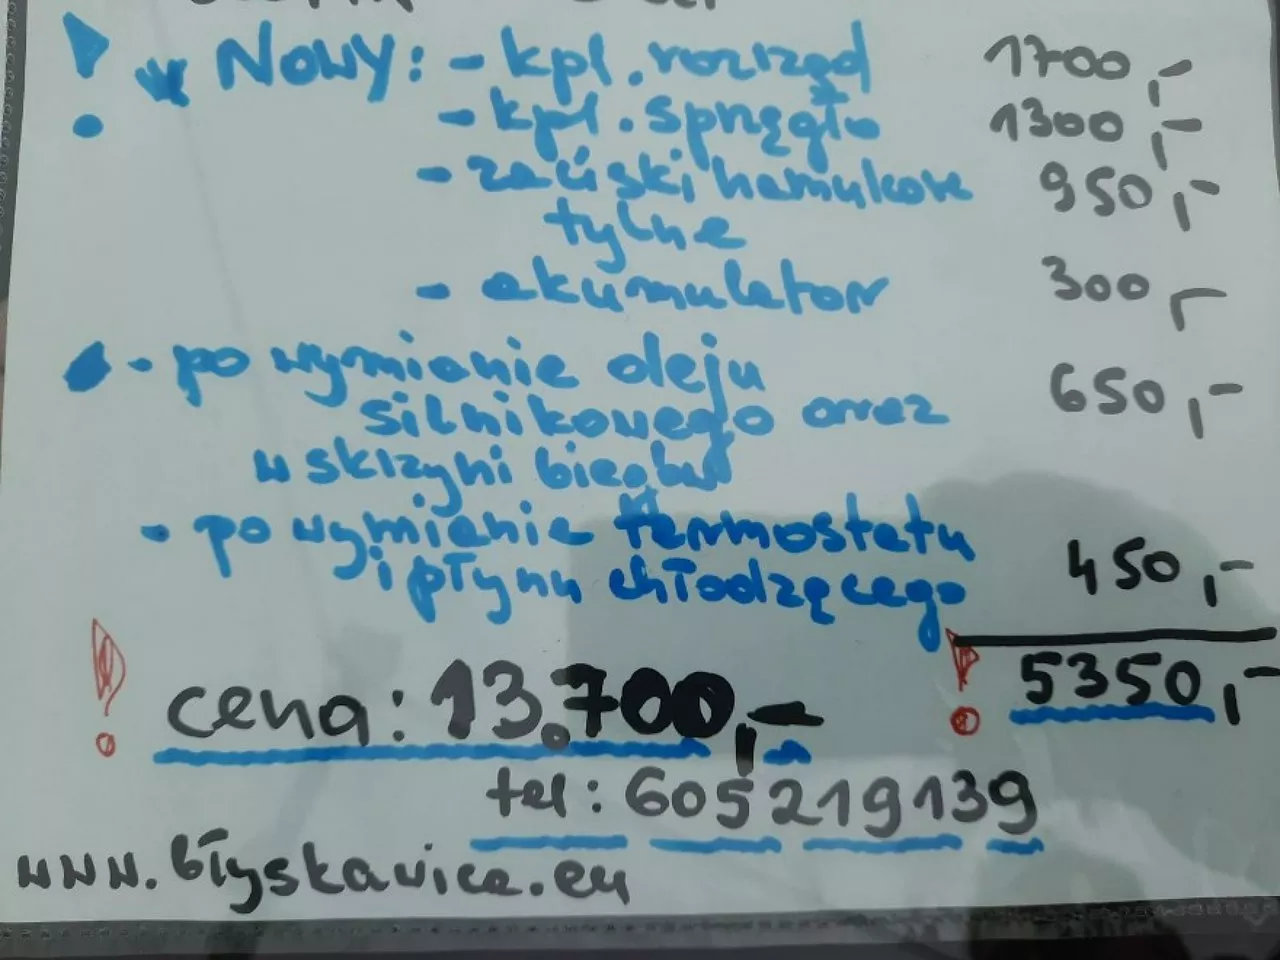 Nowy: - kpl. rozrząd 1700,-
- kpl. sprzęgło 1300,-
- zaciski hamulcowe 950,-
tylne
- akumulator 300,-
- po wymianie oleju
silnikowego oraz 650,-
w skrzyni biegów
- po wymianie termostatu
i płynu chłodzącego 450,-
! cena: 13.700,- ! 5350,-
tel: 605219139
www.błyskawica.eu